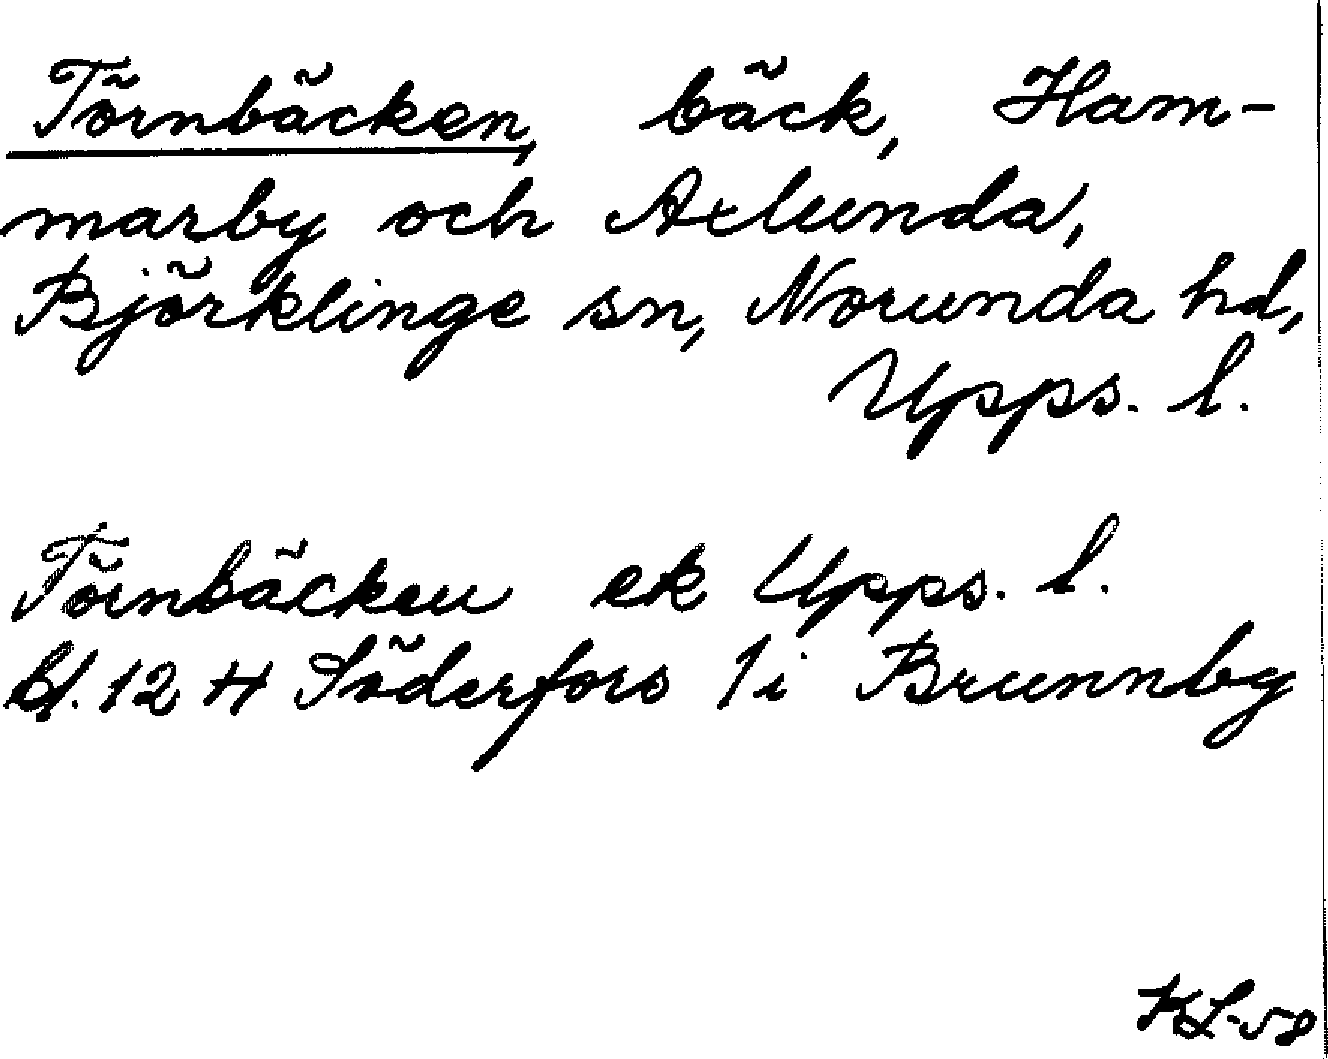 Törnbäcken, bäck, Ham-
marby och Axlunda,
Björklinge sn, Norunda hd,
Upps. l.
Törnbäcken ek Upps. l.
bl. 12 H Söderfors 1i Brunnby
KL-58